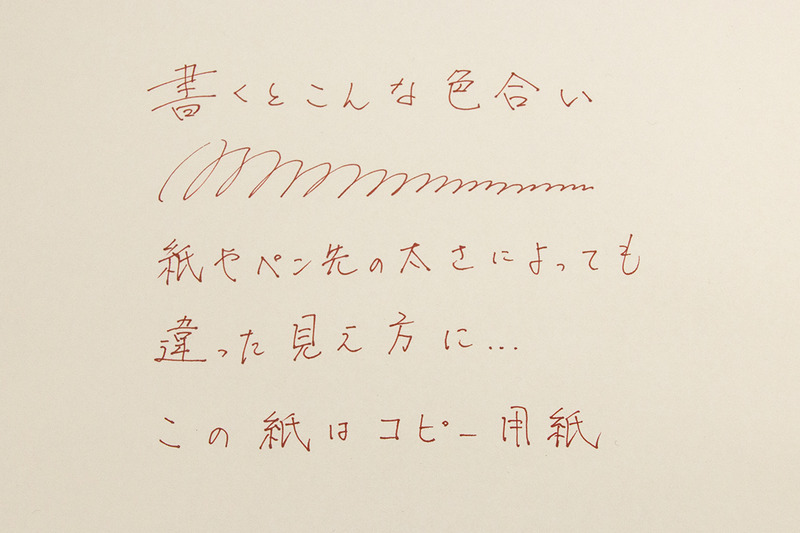 書くとこんな色合い
紙やペン先の太さによっても
違った見え方に...
この紙はコピー用紙